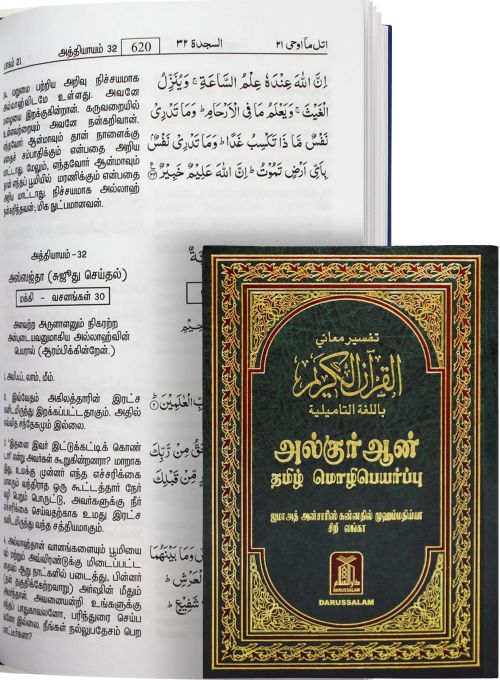 அத்தியாயம் 32
620
السجدة ٣٢
اتل ما اوحى ٢١
பாகம் 21
34. மறுமை பற்றிய அறிவு நிச்சயமாக
அல்லாஹ்விடமே உள்ளது. அவனே
மழையை இறக்குகின்றான். கருவறையில்
உள்ளவற்றையும் அவனே நன்கறிவான்.
எந்தவோர் ஆன்மாவும் தான் நாளைக்கு
எதைச் சம்பாதிக்கும் என்பதை அறிய
மாட்டாது. மேலும், எந்தவோர் ஆன்மாவும்
தான் எந்தப் பூமியில் மரணிக்கும் என்பதை
அறிய மாட்டாது. நிச்சயமாக அல்லாஹ்
நன்கறிந்தவன்; மிக நுட்பமானவன்.
اِنَّ اللّٰهَ عِنْدَهٗ عِلْمُ السَّاعَةِ ۚ وَيُنَزِّلُ
الْغَيْثَ ۚ وَيَعْلَمُ مَا فِى الْاَرْحَامِ ؕ وَمَا تَدْرِىْ
نَفْسٌ مَّا ذَا تَكْسِبُ غَدًا ؕ وَمَا تَدْرِىْ نَفْسٌۢ
بِاَىِّ اَرْضٍ تَمُوْتُ ؕ اِنَّ اللّٰهَ عَلِيْمٌ خَبِيْرٌ ﴿٣٤﴾
அத்தியாயம் -32
அஸ்ஸஜ்தா (சுஜூது செய்தல்)
மக்கீ - வசனங்கள் 30
அளவற்ற அருளாளனும் நிகரற்ற
அன்புடையவனுமாகிய அல்லாஹ்வின்
பெயரால் (ஆரம்பிக்கின்றேன்.)
1. அலிஃப், லாம், மீம்.
2. இவ்வேதம் அகிலத்தாரின் இரட்ச
கனிடமிருந்து இறக்கப்பட்டதாகும். அதில்
எவ்வித சந்தேகமும் இல்லை.
3. 'இதனை இவர் இட்டுக்கட்டிக் கொண்
டார்' என்று அவர்கள் கூறுகின்றனரா? மாறாக
இது, உமக்கு முன்னர் எந்த எச்சரிக்கை
யாளரும் வந்திராத ஒரு கூட்டத்தார் நேர்
வழி பெறும் பொருட்டு, அவர்களுக்கு நீர்
எச்சரிக்கை செய்வதற்காக உமது இரட்ச
கனிடமிருந்து வந்த சத்தியமாகும்.
4. அல்லாஹ்தான் வானங்களையும் பூமியை
யும் மற்றும் அவ்விரண்டுக்கு மிடைப்பட்ட
வற்றையும் ஆறு நாட்களில் படைத்து, பின்னர்
(தன் தகுதிக்கேற்றவாறு) அர்ஷின் மீதும்
உயர்ந்தான். அவனையன்றி உங்களுக்கு
எந்தப் பாதுகாவலனோ, பரிந்துரை செய்ப
வனோ இல்லை. நீங்கள் நல்லுபதேசம் பெற
மாட்டீர்களா?
بِّ الْعٰلَمِيْنَ
قُّ مِنْ رَّبِّكَ
مِّنْ قَبْلِكَ
وَمَا بَيْنَهُمَا
الْعَرْشِ
شَفِيْعٍ
تفسير معاني
القرآن الكريم
باللغة التاميلية
அல்குர்ஆன்
தமிழ் மொழிபெயர்ப்பு
ஜமாஅத் அன்சாரிஸ் சுன்னதில் முஹம்மதிய்யா
சிறீ லங்கா
DARUSSALAM